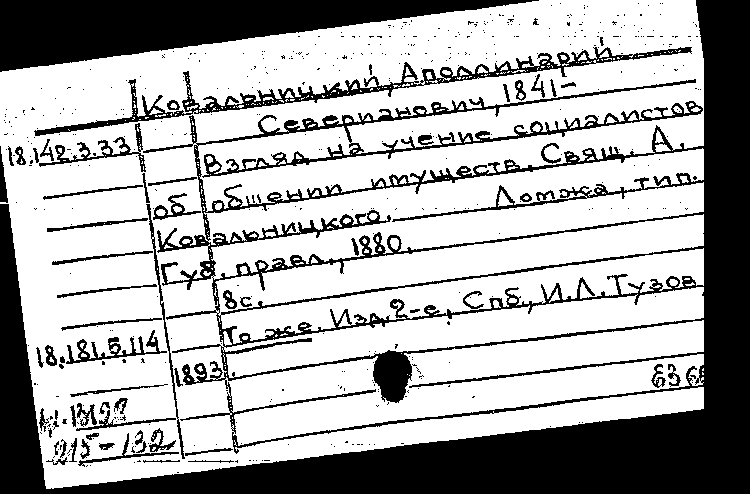 Ковальницкий, Аполлинарий
Северианович, 1841-
18.142.3.33 Взгляд на учение социалистов
об общении имуществ. Свящ. А.
Ковальницкого. Ломжа, тип.
Губ. правл., 1880.
8с.
18.181.5.114 То же. Изд. 2-е, Спб., И.Л.Тузов,
1893.
63 6
215-132